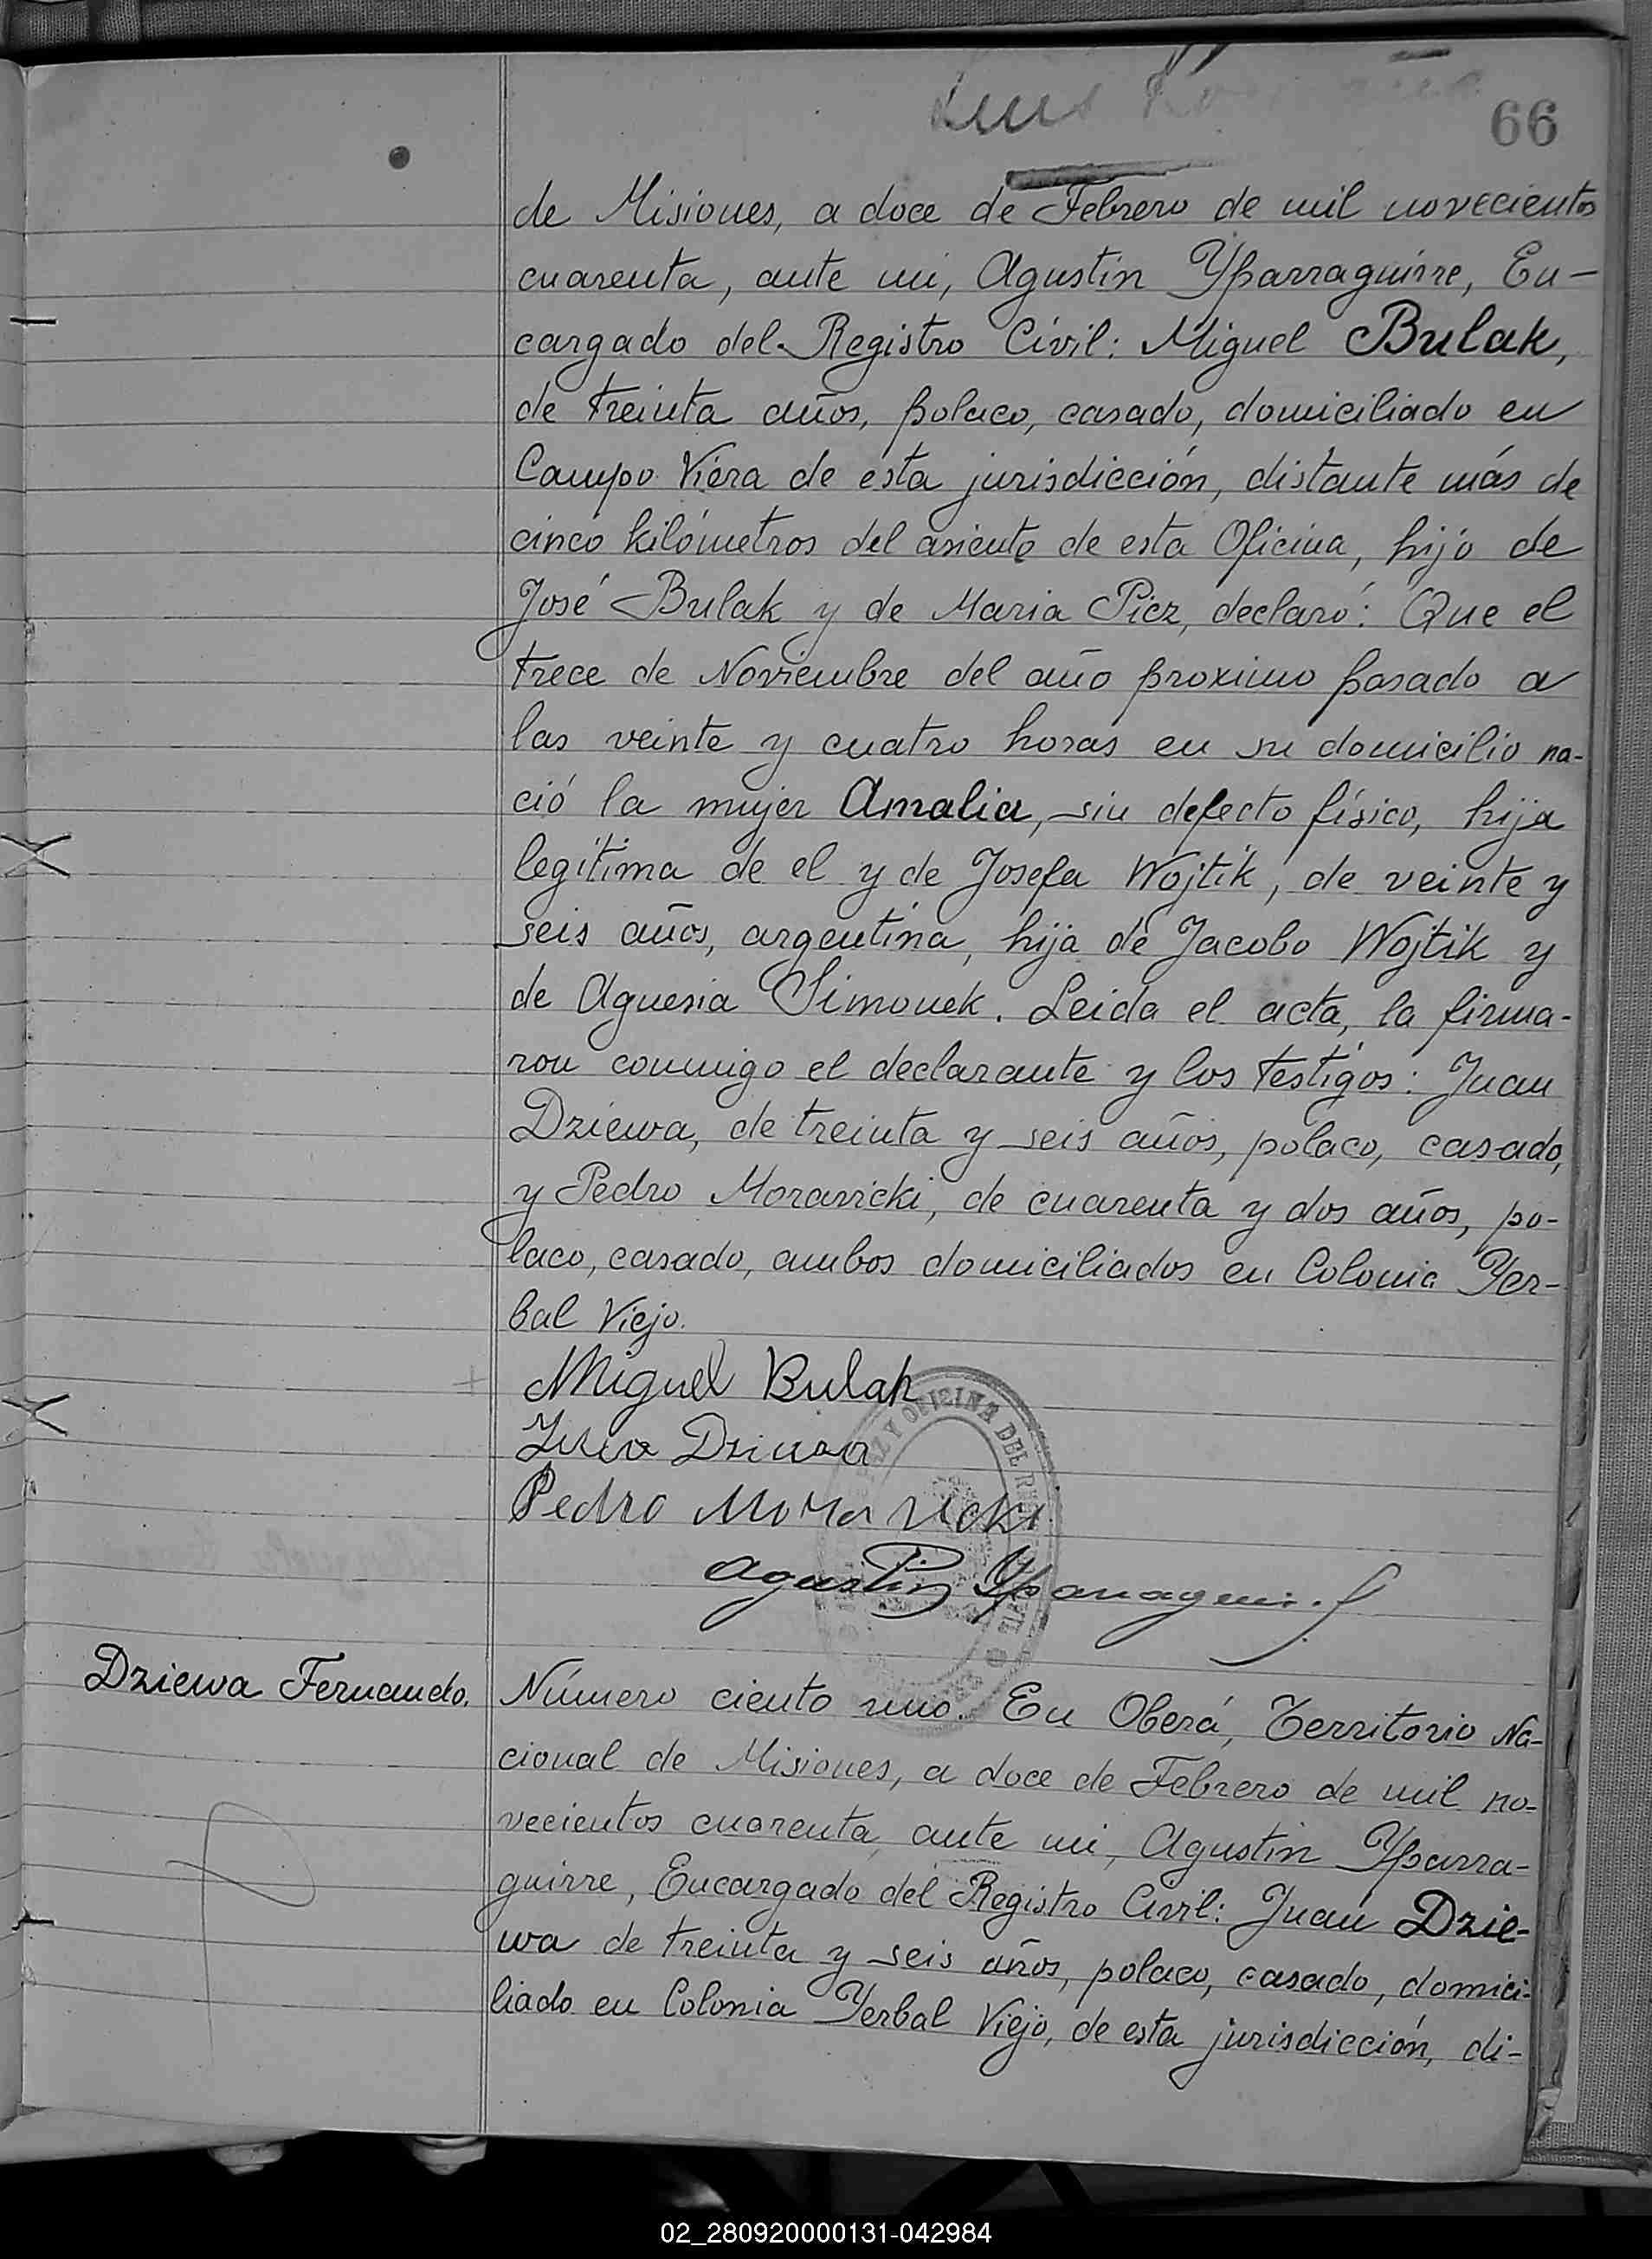 66
de Misiones, a doce de Febrero de mil novecientos
cuarenta, ante mi, Agustin Yparraguirre, En-
cargado del Registro Civil: Miguel Bulak,
de treinta años, polaco, casado, domiciliado en
Campo Viera de esta jurisdicción, distante más de
cinco kilómetros del asiento de esta Oficina, hijo de
José Bulak y de Maria Picz, declaró: Que el
trece de Noviembre del año proximo pasado a
las veinte y cuatro horas en su domicilio na-
ció la mujer Amalia, sin defecto físico, hija
legítima de el y de Josefa Wojtik, de veinte y
seis años, argentina, hija de Jacobo Wojtik y
de Aguesia Simonek. Leida el acta, la firma-
ron conmigo el declarante y los testigos: Juan
Dziewa, de treinta y seis años, polaco, casado,
y Pedro Moravicki, de cuarenta y dos años, po-
laco, casado, ambos domiciliados en Colonia Yer-
bal Viejo.
Miguel Bulak
OFICINA DEL
Pedro Moravicki
Agustin Yparraguirre
Dziewa Fernando.
Número ciento uno. En Oberá, Territorio Na-
cional de Misiones, a doce de Febrero de mil no-
vecientos cuarenta, ante mi, Agustin Yparra-
guirre, Encargado del Registro Civil: Juan Dzie-
wa de treinta y seis años, polaco, casado, domici-
liado en Colonia Yerbal Viejo, de esta jurisdicción, di-
02_280920000131-042984